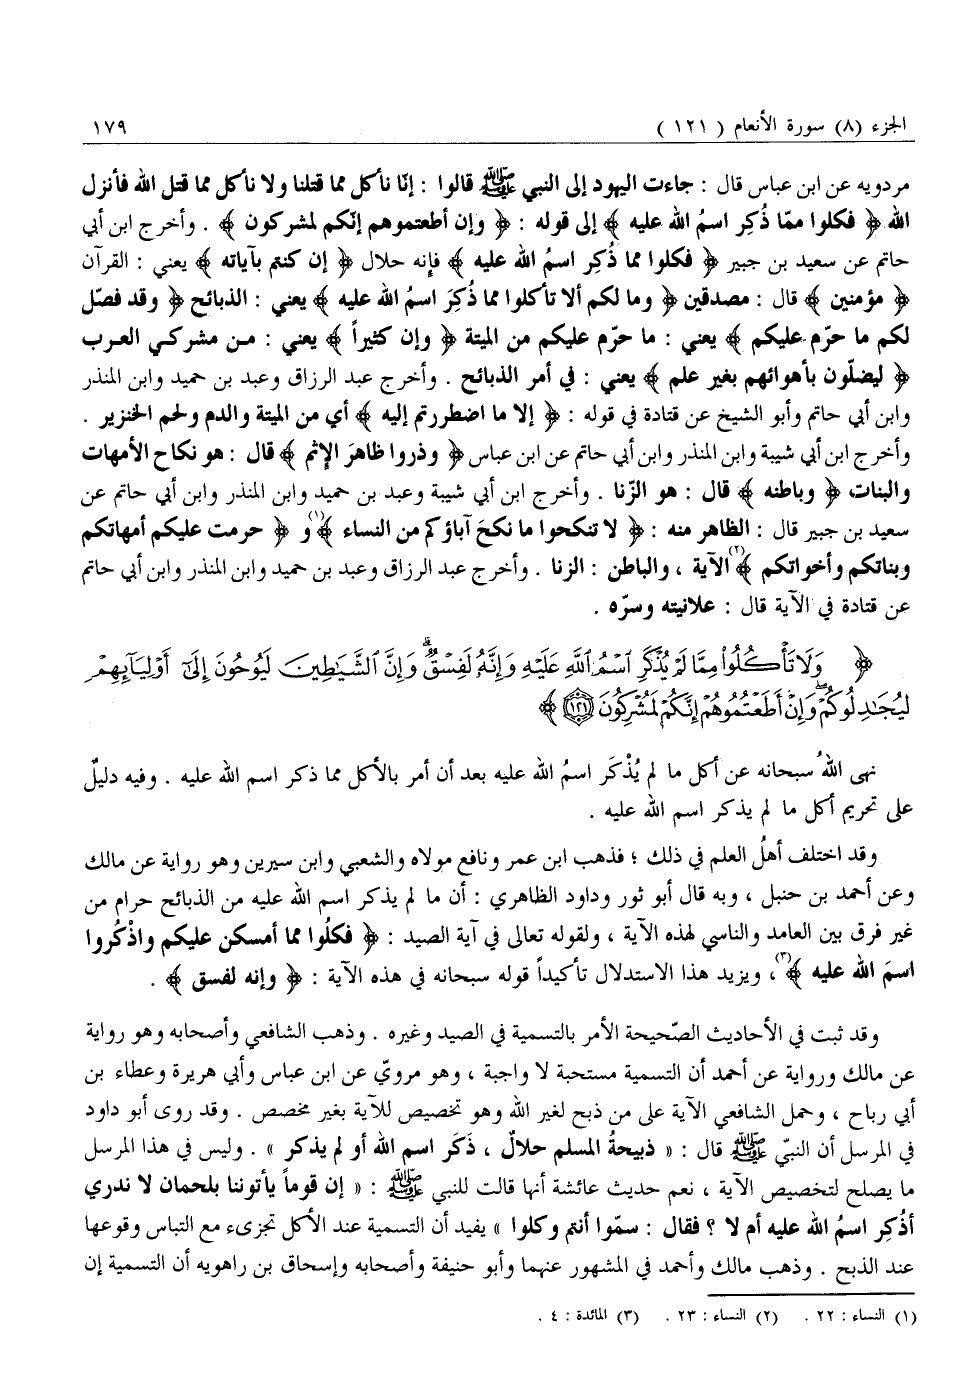 الجزء (٨) سورة الأنعام ( ١٢١ ) ١٧٩
مردويه عن ابن عباس قال : جاءت اليهود إلى النبي ﷺ قالوا : إنّا نأكل مما قتلنا ولا نأكل مما قتل الله فأنزل
الله ﴿ فكلوا ممّا ذُكِر اسمُ الله عليه ﴾ إلى قوله : ﴿ وإن أطعتموهم إنّكم لمشركون ﴾ . وأخرج ابن أبي
حاتم عن سعيد بن جبير ﴿ فكلوا مما ذُكِر اسمُ الله عليه ﴾ فإنه حلال ﴿ إن كنتم بآياته ﴾ يعني : القرآن
﴿ مؤمنين ﴾ قال : مصدقين ﴿ وما لكم ألا تأكلوا مما ذُكِرَ اسمُ الله عليه ﴾ يعني : الذبائح ﴿ وقد فصّل
لكم ما حرّم عليكم ﴾ يعني : ما حرّم عليكم من الميتة ﴿ وإن كثيراً ﴾ يعني : من مشركي العرب
﴿ ليضلّون بأهوائهم بغير علم ﴾ يعني : في أمر الذبائح . وأخرج عبد الرزاق وعبد بن حميد وابن المنذر
وابن أبي حاتم وأبو الشيخ عن قتادة في قوله : ﴿ إلا ما اضطررتم إليه ﴾ أي من الميتة والدم ولحم الخنزير .
وأخرج ابن أبي شيبة وابن المنذر وابن أبي حاتم عن ابن عباس ﴿ وذروا ظاهرَ الإثم ﴾ قال : هو نكاح الأمهات
والبنات ﴿ وباطنه ﴾ قال : هو الزّنا . وأخرج ابن أبي شيبة وعبد بن حميد وابن المنذر وابن أبي حاتم عن
سعيد بن جبير قال : الظاهر منه : ﴿ لا تنكحوا ما نكحَ آباؤكم من النساء ﴾(١) و ﴿ حرمت عليكم أمهاتكم
وبناتكم وأخواتكم ﴾(٢) الآية ، والباطن : الزنا . وأخرج عبد الرزاق وعبد بن حميد وابن المنذر وابن أبي حاتم
عن قتادة في الآية قال : علانيته وسرّه .
﴿ وَلَا تَأْكُلُوا۟ مِمَّا لَمْ يُذْكَرِ ٱسْمُ ٱللَّهِ عَلَيْهِ وَإِنَّهُۥ لَفِسْقٌ ۗ وَإِنَّ ٱلشَّيَٰطِينَ لَيُوحُونَ إِلَىٰٓ أَوْلِيَآئِهِمْ
لِيُجَٰدِلُوكُمْ ۖ وَإِنْ أَطَعْتُمُوهُمْ إِنَّكُمْ لَمُشْرِكُونَ ١٢١ ﴾
نهى اللهُ سبحانه عن أكل ما لم يُذْكَر اسمُ الله عليه بعد أن أمر بالأكل مما ذكر اسم الله عليه . وفيه دليلٌ
على تحريم أكل ما لم يذكر اسم الله عليه .
وقد اختلف أهلُ العلم في ذلك ؛ فذهب ابن عمر ونافع مولاه والشعبي وابن سيرين وهو رواية عن مالك
وعن أحمد بن حنبل ، وبه قال أبو ثور وداود الظاهري : أن ما لم يذكر اسم الله عليه من الذبائح حرام من
غير فرق بين العامد والناسي لهذه الآية ، ولقوله تعالى في آية الصيد : ﴿ فكلُوا مما أمسكن عليكم واذْكُروا
اسمَ الله عليه ﴾(٣)، ويزيد هذا الاستدلال تأكيداً قوله سبحانه في هذه الآية : ﴿ وإنه لفسق ﴾ .
وقد ثبت في الأحاديث الصّحيحة الأمر بالتسمية في الصيد وغيره . وذهب الشافعي وأصحابه وهو رواية
عن مالك ورواية عن أحمد أن التسمية مستحبة لا واجبة ، وهو مرويّ عن ابن عباس وأبي هريرة وعطاء بن
أبي رباح ، وحمل الشافعي الآية على من ذبح لغير الله وهو تخصيص للآية بغير مخصص . وقد روى أبو داود
في المرسل أن النبيّ ﷺ قال : « ذبيحةُ المسلم حلالٌ ، ذَكَر اسم الله أو لم يذكر » . وليس في هذا المرسل
ما يصلح لتخصيص الآية ، نعم حديث عائشة أنها قالت للنبي ﷺ : « إن قوماً يأتوننا بلحمان لا ندري
أذُكِر اسمُ الله عليه أم لا ؟ فقال : سمّوا أنتم وكلوا » يفيد أن التسمية عند الأكل تجزىء مع التباس وقوعها
عند الذبح . وذهب مالك وأحمد في المشهور عنهما وأبو حنيفة وأصحابه وإسحاق بن راهويه أن التسمية إن
(١) النساء : ٢٢ . (٢) النساء : ٢٣ . (٣) المائدة : ٤ .